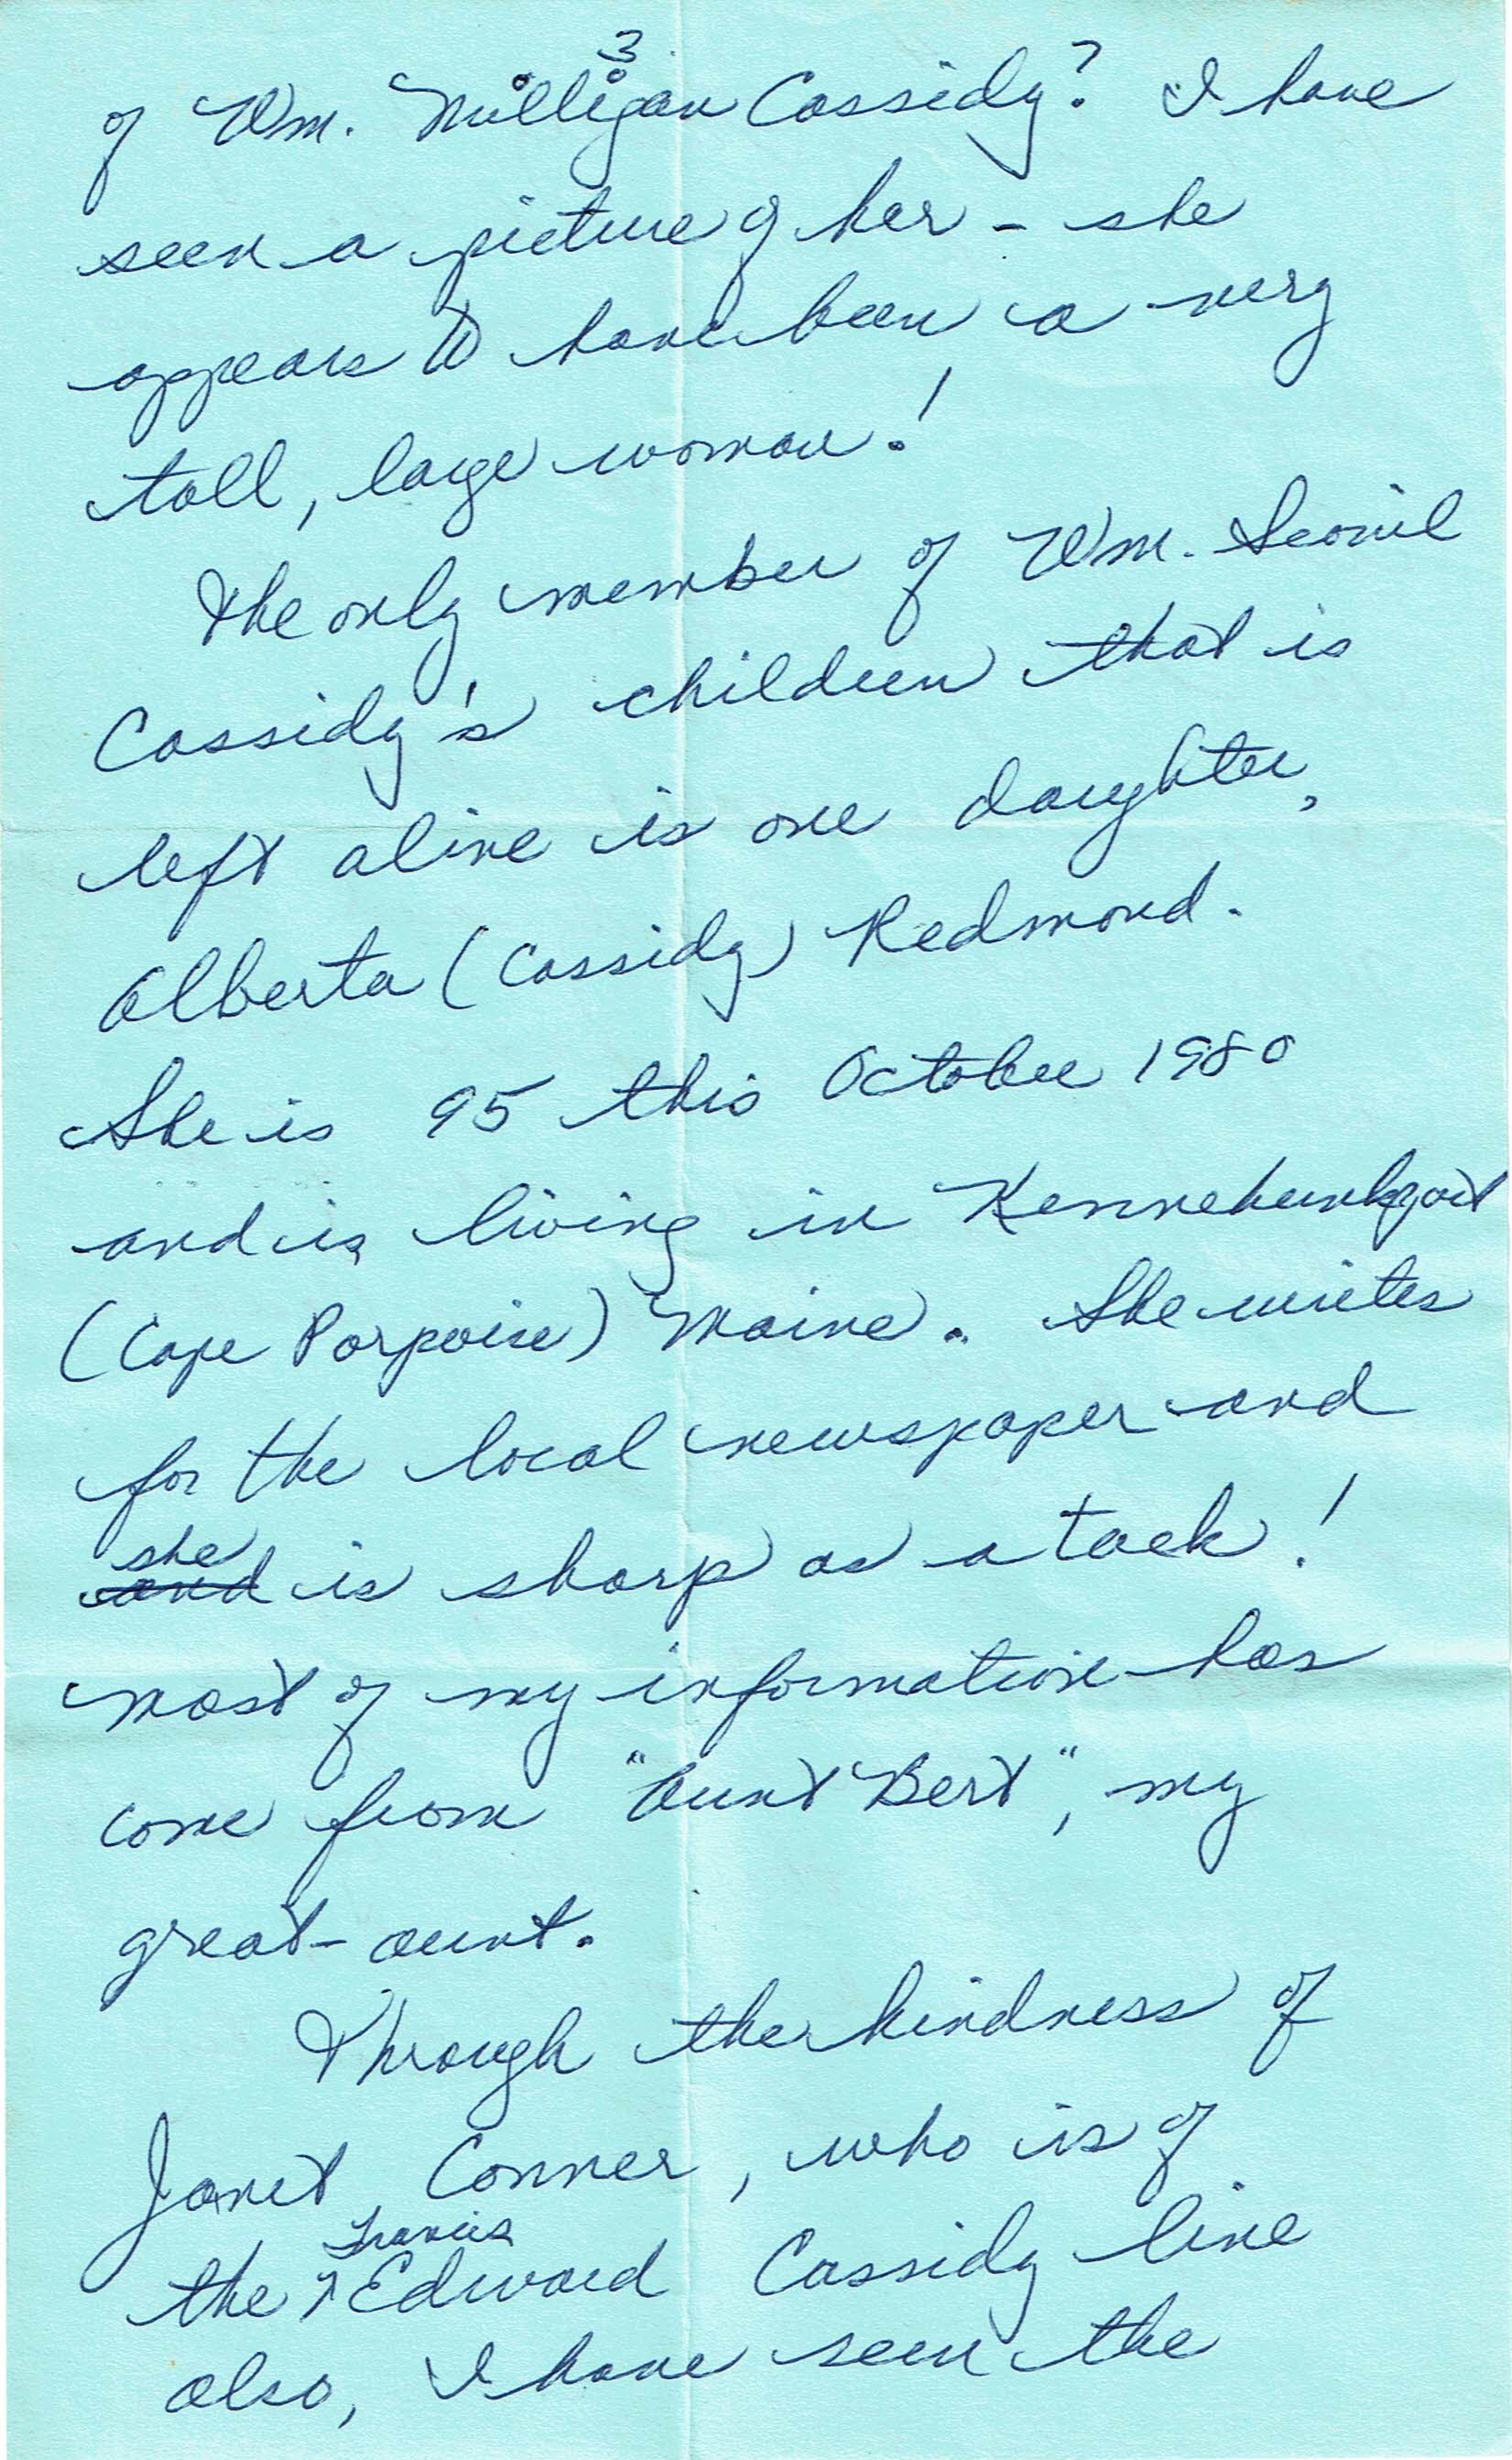 3
of Wm. Milligan Cassidy? I have
seen a picture of her - she
appears to have been a very
tall, large woman!
The only member of Wm. Scovil
Cassidy's children that is
left alive is one daughter,
Alberta (Cassidy) Redmond.
She is 95 this October 1980
and is living in Kennebunkport
(Cape Porpoise) Maine. She writes
for the local newspaper and
she
and is sharp as a tack!
Most of my information has
come from "Aunt Bert", my
great-aunt.
Through the kindness of
Janet Conner, who is of
Francis
the ^ Edward Cassidy line
also, I have seen the